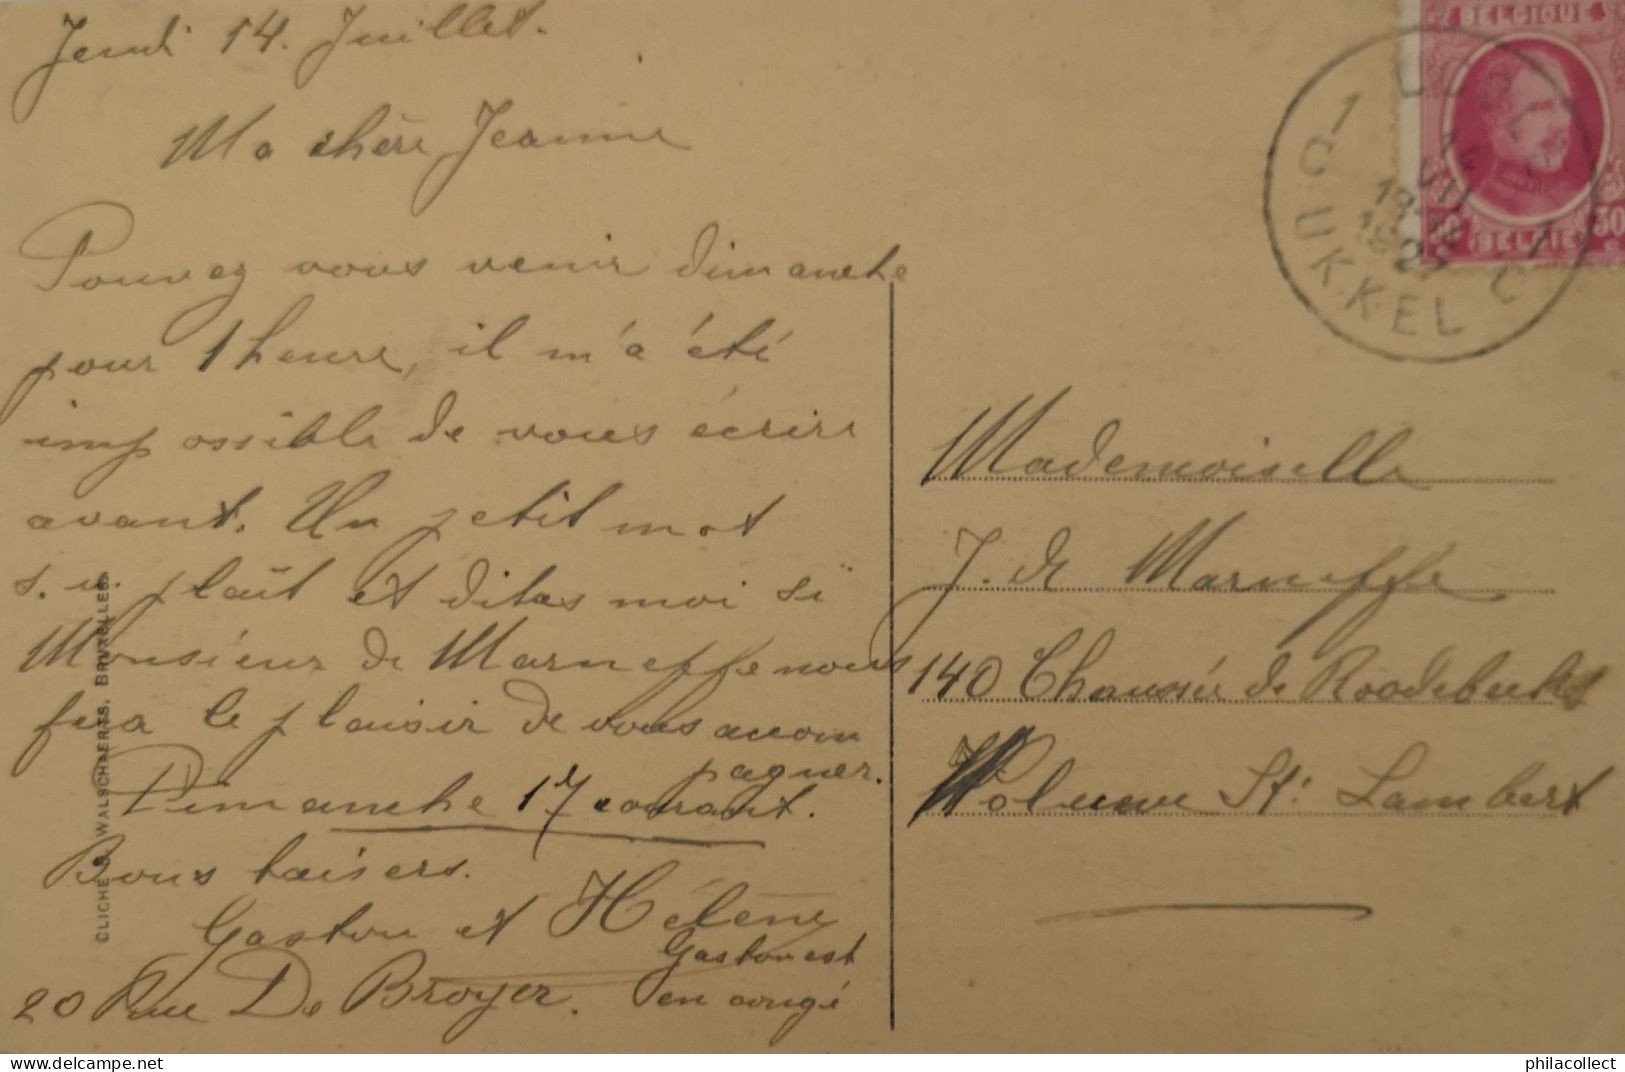 Jeudi 14 Juillet.
Ma chère Jeanne
Pouvez vous venir dimanche
pour 1 heure, il m'a été
impossible de vous écrire
avant. Un petit mot
s. v. plaît et dites moi si
Monsieur de Marneffe nous
fera le plaisir de vous accom
pagner.
Dimanche 17 courant.
Bons baisers.
Gaston et Hélène
Gaston est
en congé
20 Rue De Broyer.
CLICHÉ WALSCHAERTS, BRUXELLES.
BELGIQUE
30 30
BELGIË
UCCLE 1
14 VII
1927
UKKEL 1
C C
Mademoiselle
J. de Marneffe
140 Chaussée de Roodebeek
Woluwe St. Lambert
philacollect